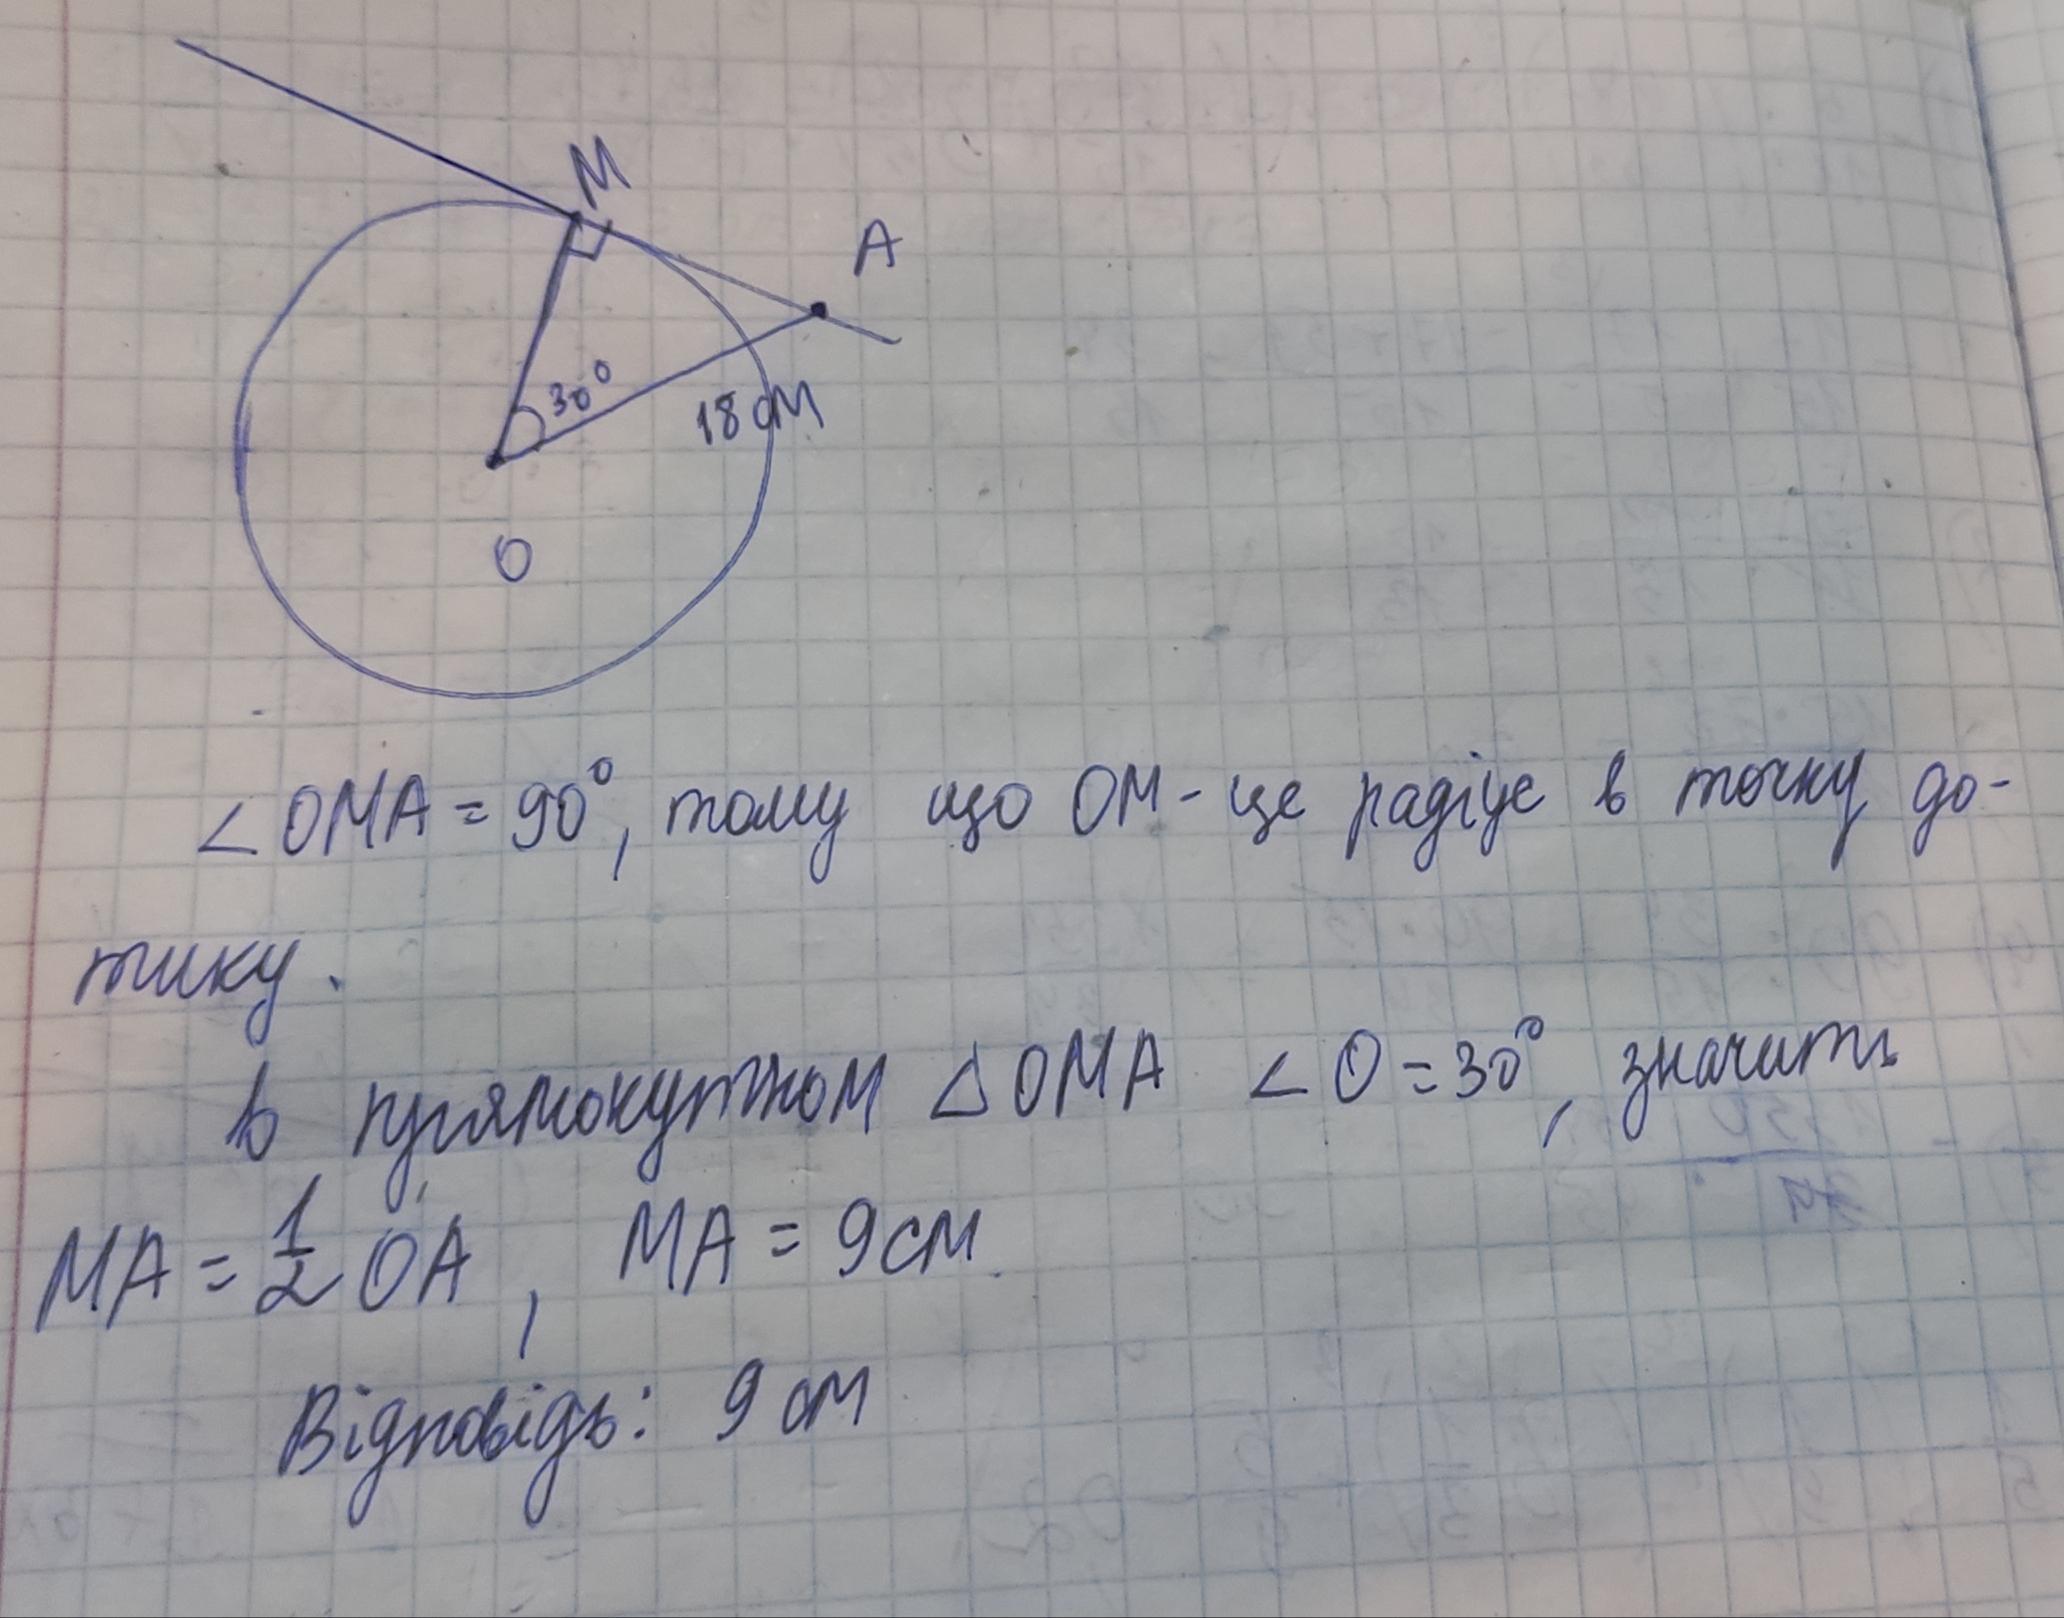 M
A
30°
18 см
O
∠OMA = 90°, тому що OM - це радіус в точку до-
тику.
В прямокутном △OMA ∠O = 30°, значить
MA = 1/2 OA, MA = 9 см.
Відповідь: 9 см